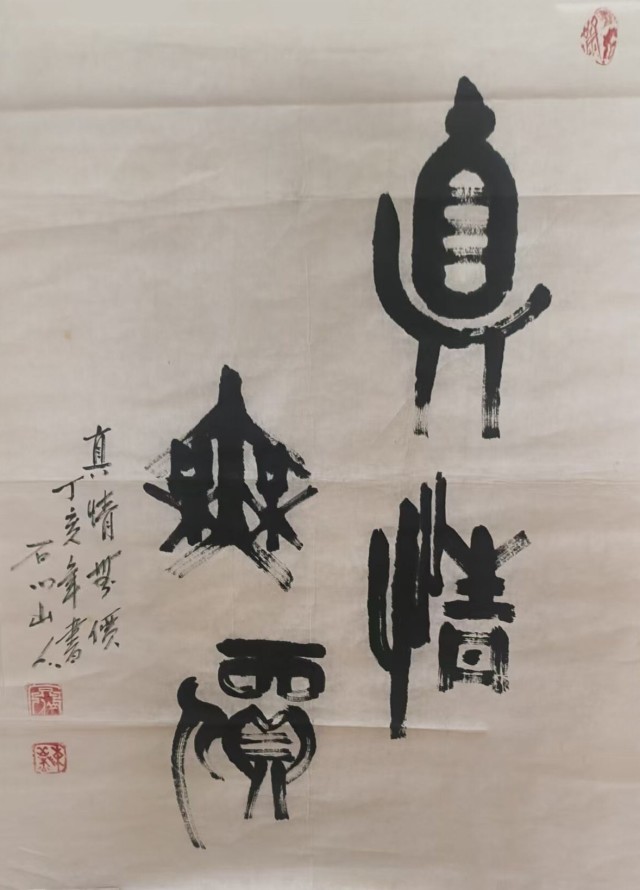 真情
無價
真情無價
丁亥年書
石門山人